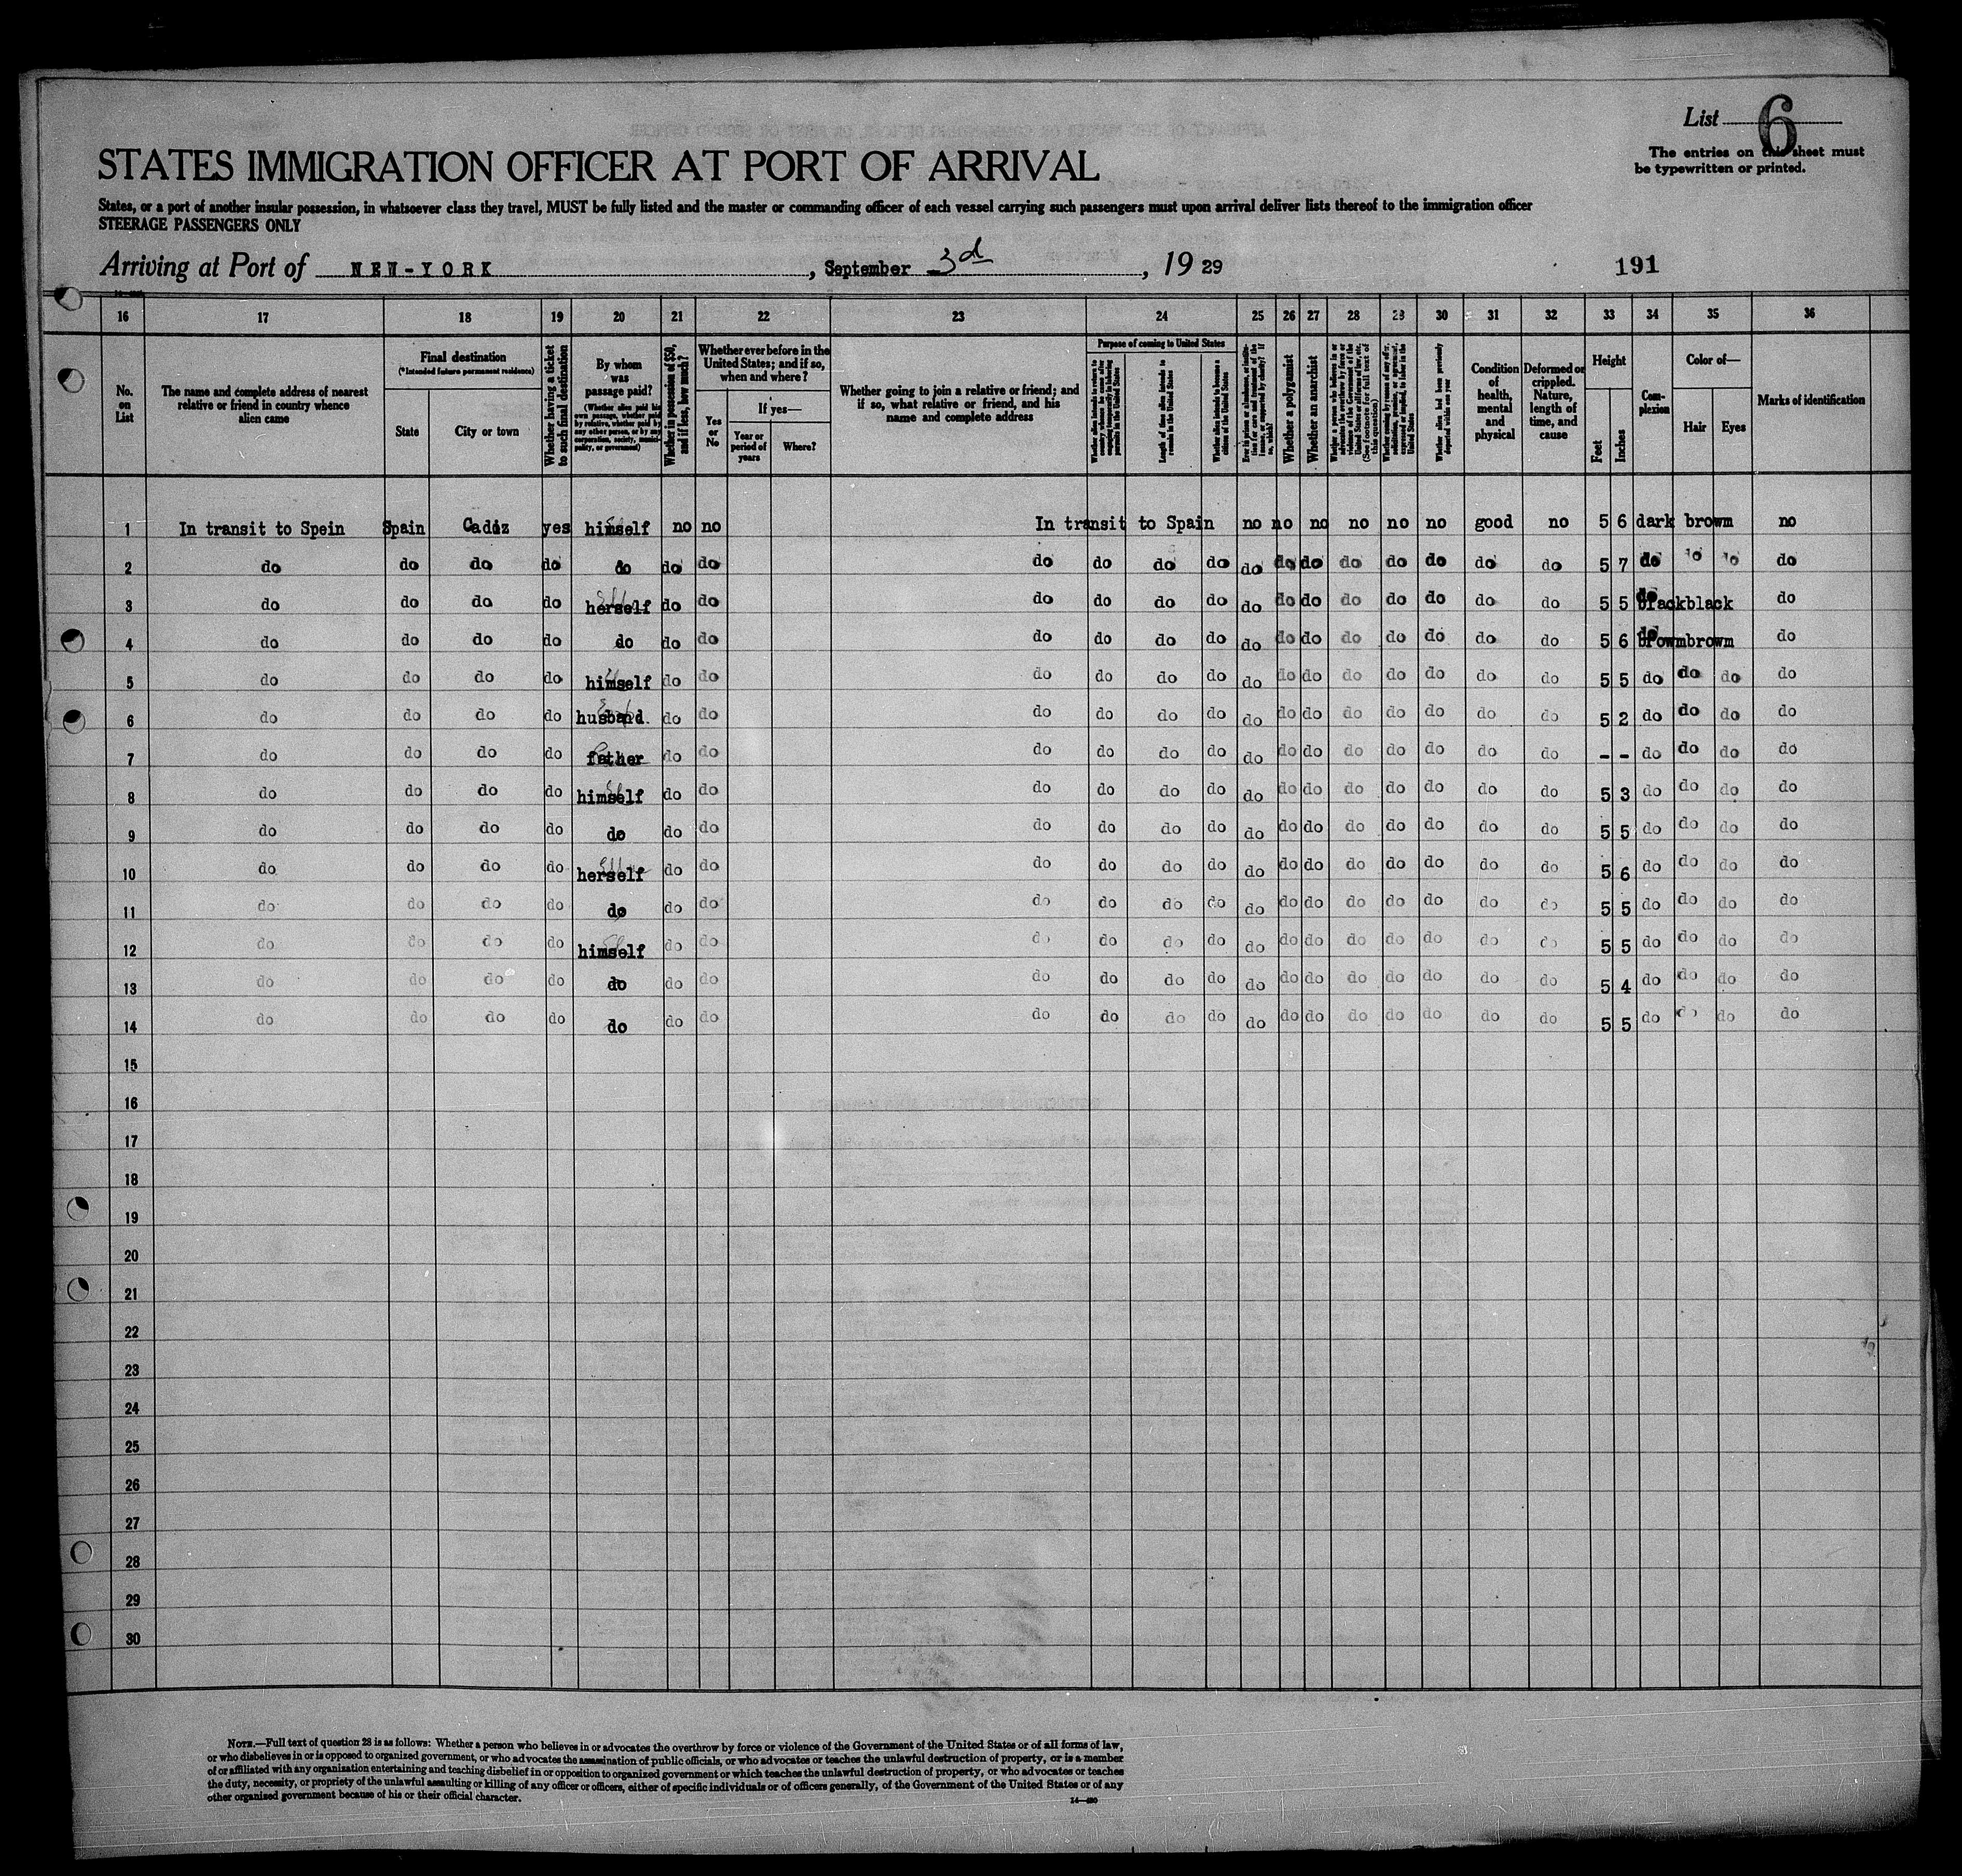 List 6
The entries on this sheet must
be typewritten or printed.
STATES IMMIGRATION OFFICER AT PORT OF ARRIVAL
States, or a port of another insular possession, in whatsoever class they travel, MUST be fully listed and the master or commanding officer of each vessel carrying such passengers must upon arrival deliver lists thereof to the immigration officer
STEERAGE PASSENGERS ONLY
Arriving at Port of NEW-YORK, September 3d, 19 29
191
16 17 18 19 20 21 22 23 24 25 26 27 28 29 30 31 32 33 34 35 36
No. on List
The name and complete address of nearest relative or friend in country whence alien came
Final destination
(*Intended future permanent residence)
State
City or town
Whether having a ticket to such final destination
By whom was passage paid?
(Whether alien paid his own passage, whether paid by relative, whether paid by any other person, or by any corporation, society, municipality, or government)
Whether in possession of $50, and if less, how much?
Whether ever before in the United States; and if so, when and where?
Yes or No
If yes—
Year or period of years
Where?
Whether going to join a relative or friend; and if so, what relative or friend, and his name and complete address
Purpose of coming to United States
Length of time alien intends to remain in the United States
Whether alien intends to become a citizen of the United States
Whether a polygamist
Whether an anarchist
Whether alien had been previously deported within one year
Condition of health, mental and physical
Deformed or crippled. Nature, length of time, and cause
Height
Feet
Inches
Complexion
Color of—
Hair
Eyes
Marks of identification
1 In transit to Spein Spain Cadiz yes himself no no In transit to Spain no no no no no no good no 5 6 dark brown no
2 do do do do do do do do do do do do do do do do do do do 5 7 do do do do
3 do do do do herself do do do do do do do do do do do do do do 5 5 do black black do
4 do do do do do do do do do do do do do do do do do do do 5 6 do browm browm do
5 do do do do himself do do do do do do do do do do do do do do 5 5 do do do do
6 do do do do husband. do do do do do do do do do do do do do do 5 2 do do do do
7 do do do do father do do do do do do do do do do do do do do - - do do do do
8 do do do do himself do do do do do do do do do do do do do do 5 3 do do do do
9 do do do do do do do do do do do do do do do do do do do 5 5 do do do do
10 do do do do herself do do do do do do do do do do do do do do 5 6 do do do do
11 do do do do do do do do do do do do do do do do do do do 5 5 do do do do
12 do do do do himself do do do do do do do do do do do do do do 5 5 do do do do
13 do do do do do do do do do do do do do do do do do do do 5 4 do do do do
14 do do do do do do do do do do do do do do do do do do do 5 5 do do do do
15
16
17
18
19
20
21
22
23
24
25
26
27
28
29
30
NOTE.—Full text of question 28 is as follows: Whether a person who believes in or advocates the overthrow by force or violence of the Government of the United States or of all forms of law,
or who disbelieves in or is opposed to organized government, or who advocates the assassination of public officials, or who advocates or teaches the unlawful destruction of property, or is a member
of or affiliated with any organization entertaining and teaching disbelief in or opposition to organized government or which teaches the unlawful destruction of property, or who advocates or teaches
the duty, necessity, or propriety of the unlawful assaulting or killing of any officer or officers, either of specific individuals or of officers generally, of the Government of the United States or of any
other organized government because of his or their official character.
14—480